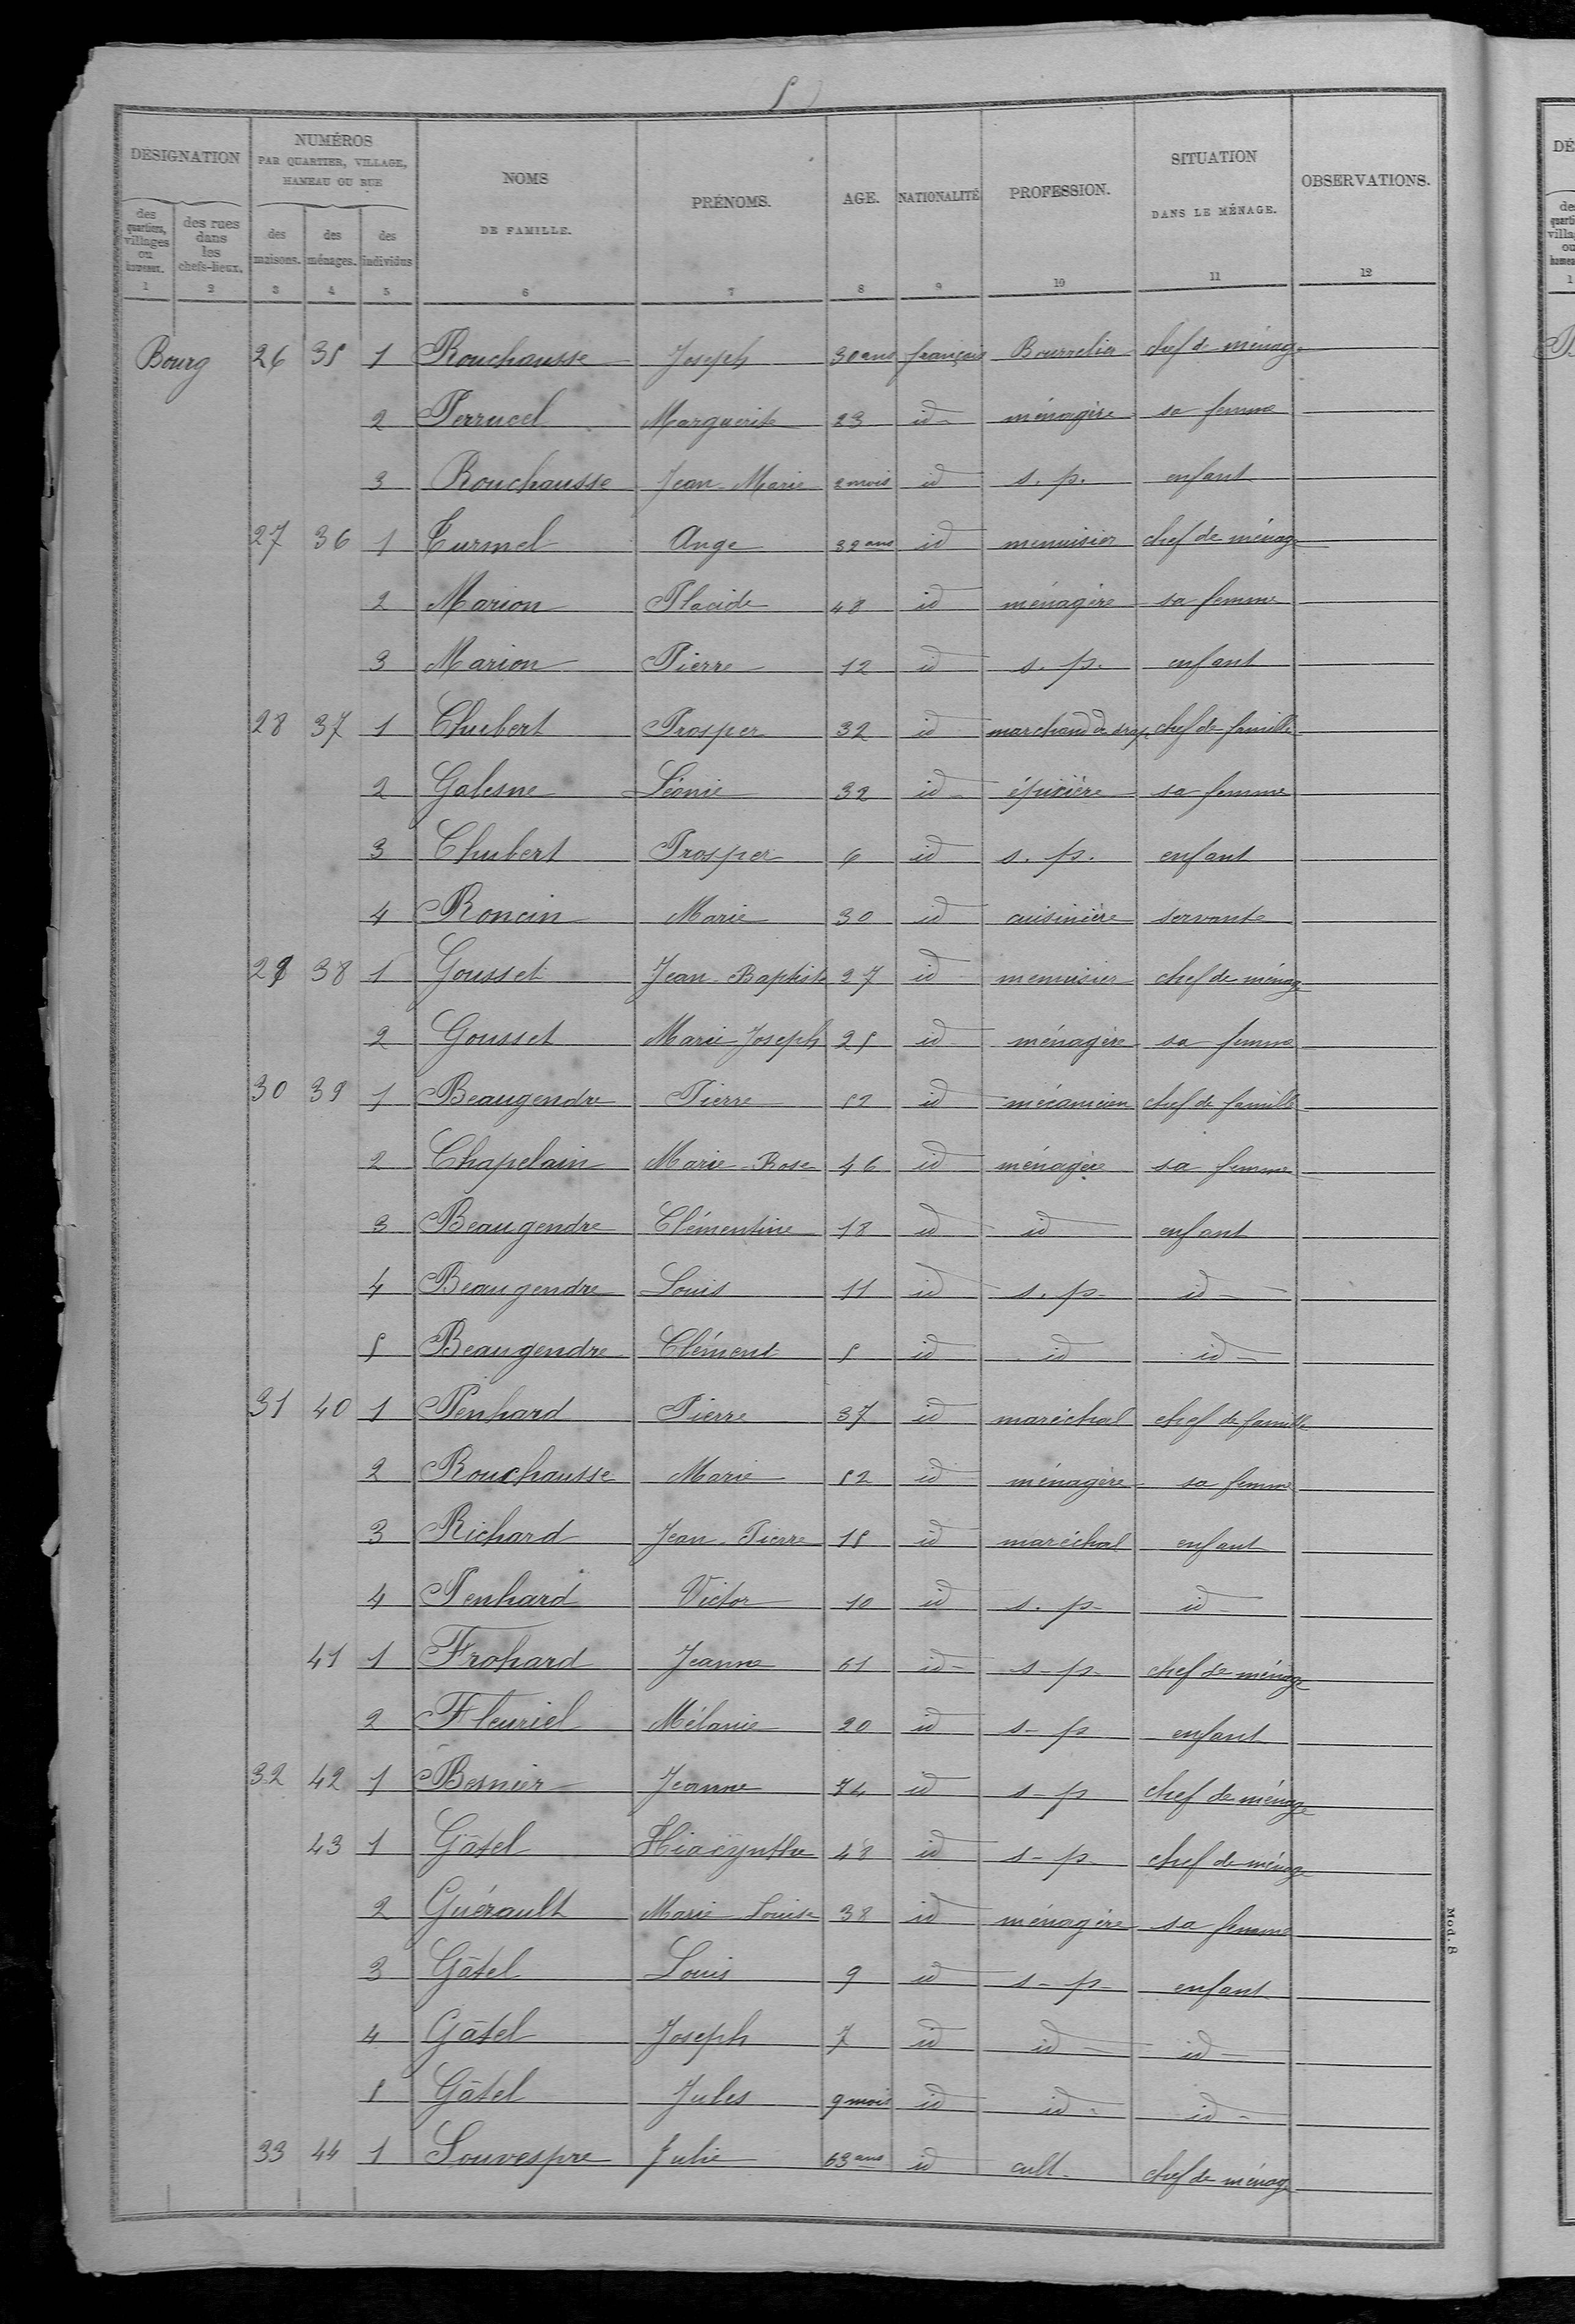 5
DÉSIGNATION
NUMÉROS
PAR QUARTIER, VILLAGE,
HAMEAU OU RUE
NOMS
DE FAMILLE.
PRÉNOMS.
AGE.
NATIONALITÉ
PROFESSION.
SITUATION
DANS LE MÉNAGE.
OBSERVATIONS.
des quartiers, villages ou hameaux.
des rues dans les chefs-lieux.
des maisons.
des ménages.
des individus
1 2 3 4 5 6 7 8 9 10 11 12
Bourg 26 35 1 Rouchausse Joseph 30 ans français Bourrelier chef de ménage
2 Perrucel Marguerite 23 id ménagère sa femme
3 Rouchausse Jean-Marie 2 mois id s. p. enfant
27 36 1 Turmel Ange 32 ans id menuisier chef de ménage
2 Marion Placide 48 id ménagère sa femme
3 Marion Pierre 12 id s. p. enfant
28 37 1 Chubert Prosper 32 id marchand de drap chef de famille
2 Galesne Léonie 32 id épicière sa femme
3 Chubert Prosper 6 id s. p. enfant
4 Roncin Marie 30 id cuisinière servante
29 38 1 Gousset Jean-Baptiste 27 id menuisier chef de ménage
2 Gousset Marie Joseph 25 id ménagère sa femme
30 39 1 Beaugendre Pierre 52 id mécanicien chef de famille
2 Chapelain Marie-Rose 46 id ménagère sa femme
3 Beaugendre Clémentine 18 id id enfant
4 Beaugendre Louis 11 id s. p. id
5 Beaugendre Clément 5 id id id
31 40 1 Penhard Pierre 37 id maréchal chef de famille
2 Rouchausse Marie 52 id ménagère sa femme
3 Richard Jean-Pierre 15 id maréchal enfant
4 Penhard Victor 10 id s. p. id
41 1 Frohard Jeanne 61 id s-p chef de ménage
2 Fleuriel Mélanie 20 id s-p enfant
32 42 1 Besnier Jeanne 74 id s-p chef de ménage
43 1 Gâtel Hiacynthe 48 id s-p chef de ménage
2 Guérault Marie Louise 38 id ménagère sa femme
3 Gâtel Louis 9 id s-p enfant
4 Gâtel Joseph 7 id id id
5 Gâtel Jules 9 mois id id id
33 44 1 Louvespre Julie 63 ans id cult. chef de ménage
Mod. 8